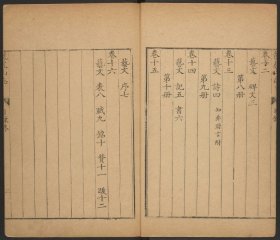 卷十二
藝文 碑文三
第八册
卷十三
藝文 詩四
第九册
卷十四
藝文 記五 書六
第十册
卷十五
藝文 序七
卷十六
藝文 表八 箴九 銘十 贊十一 䟦十二